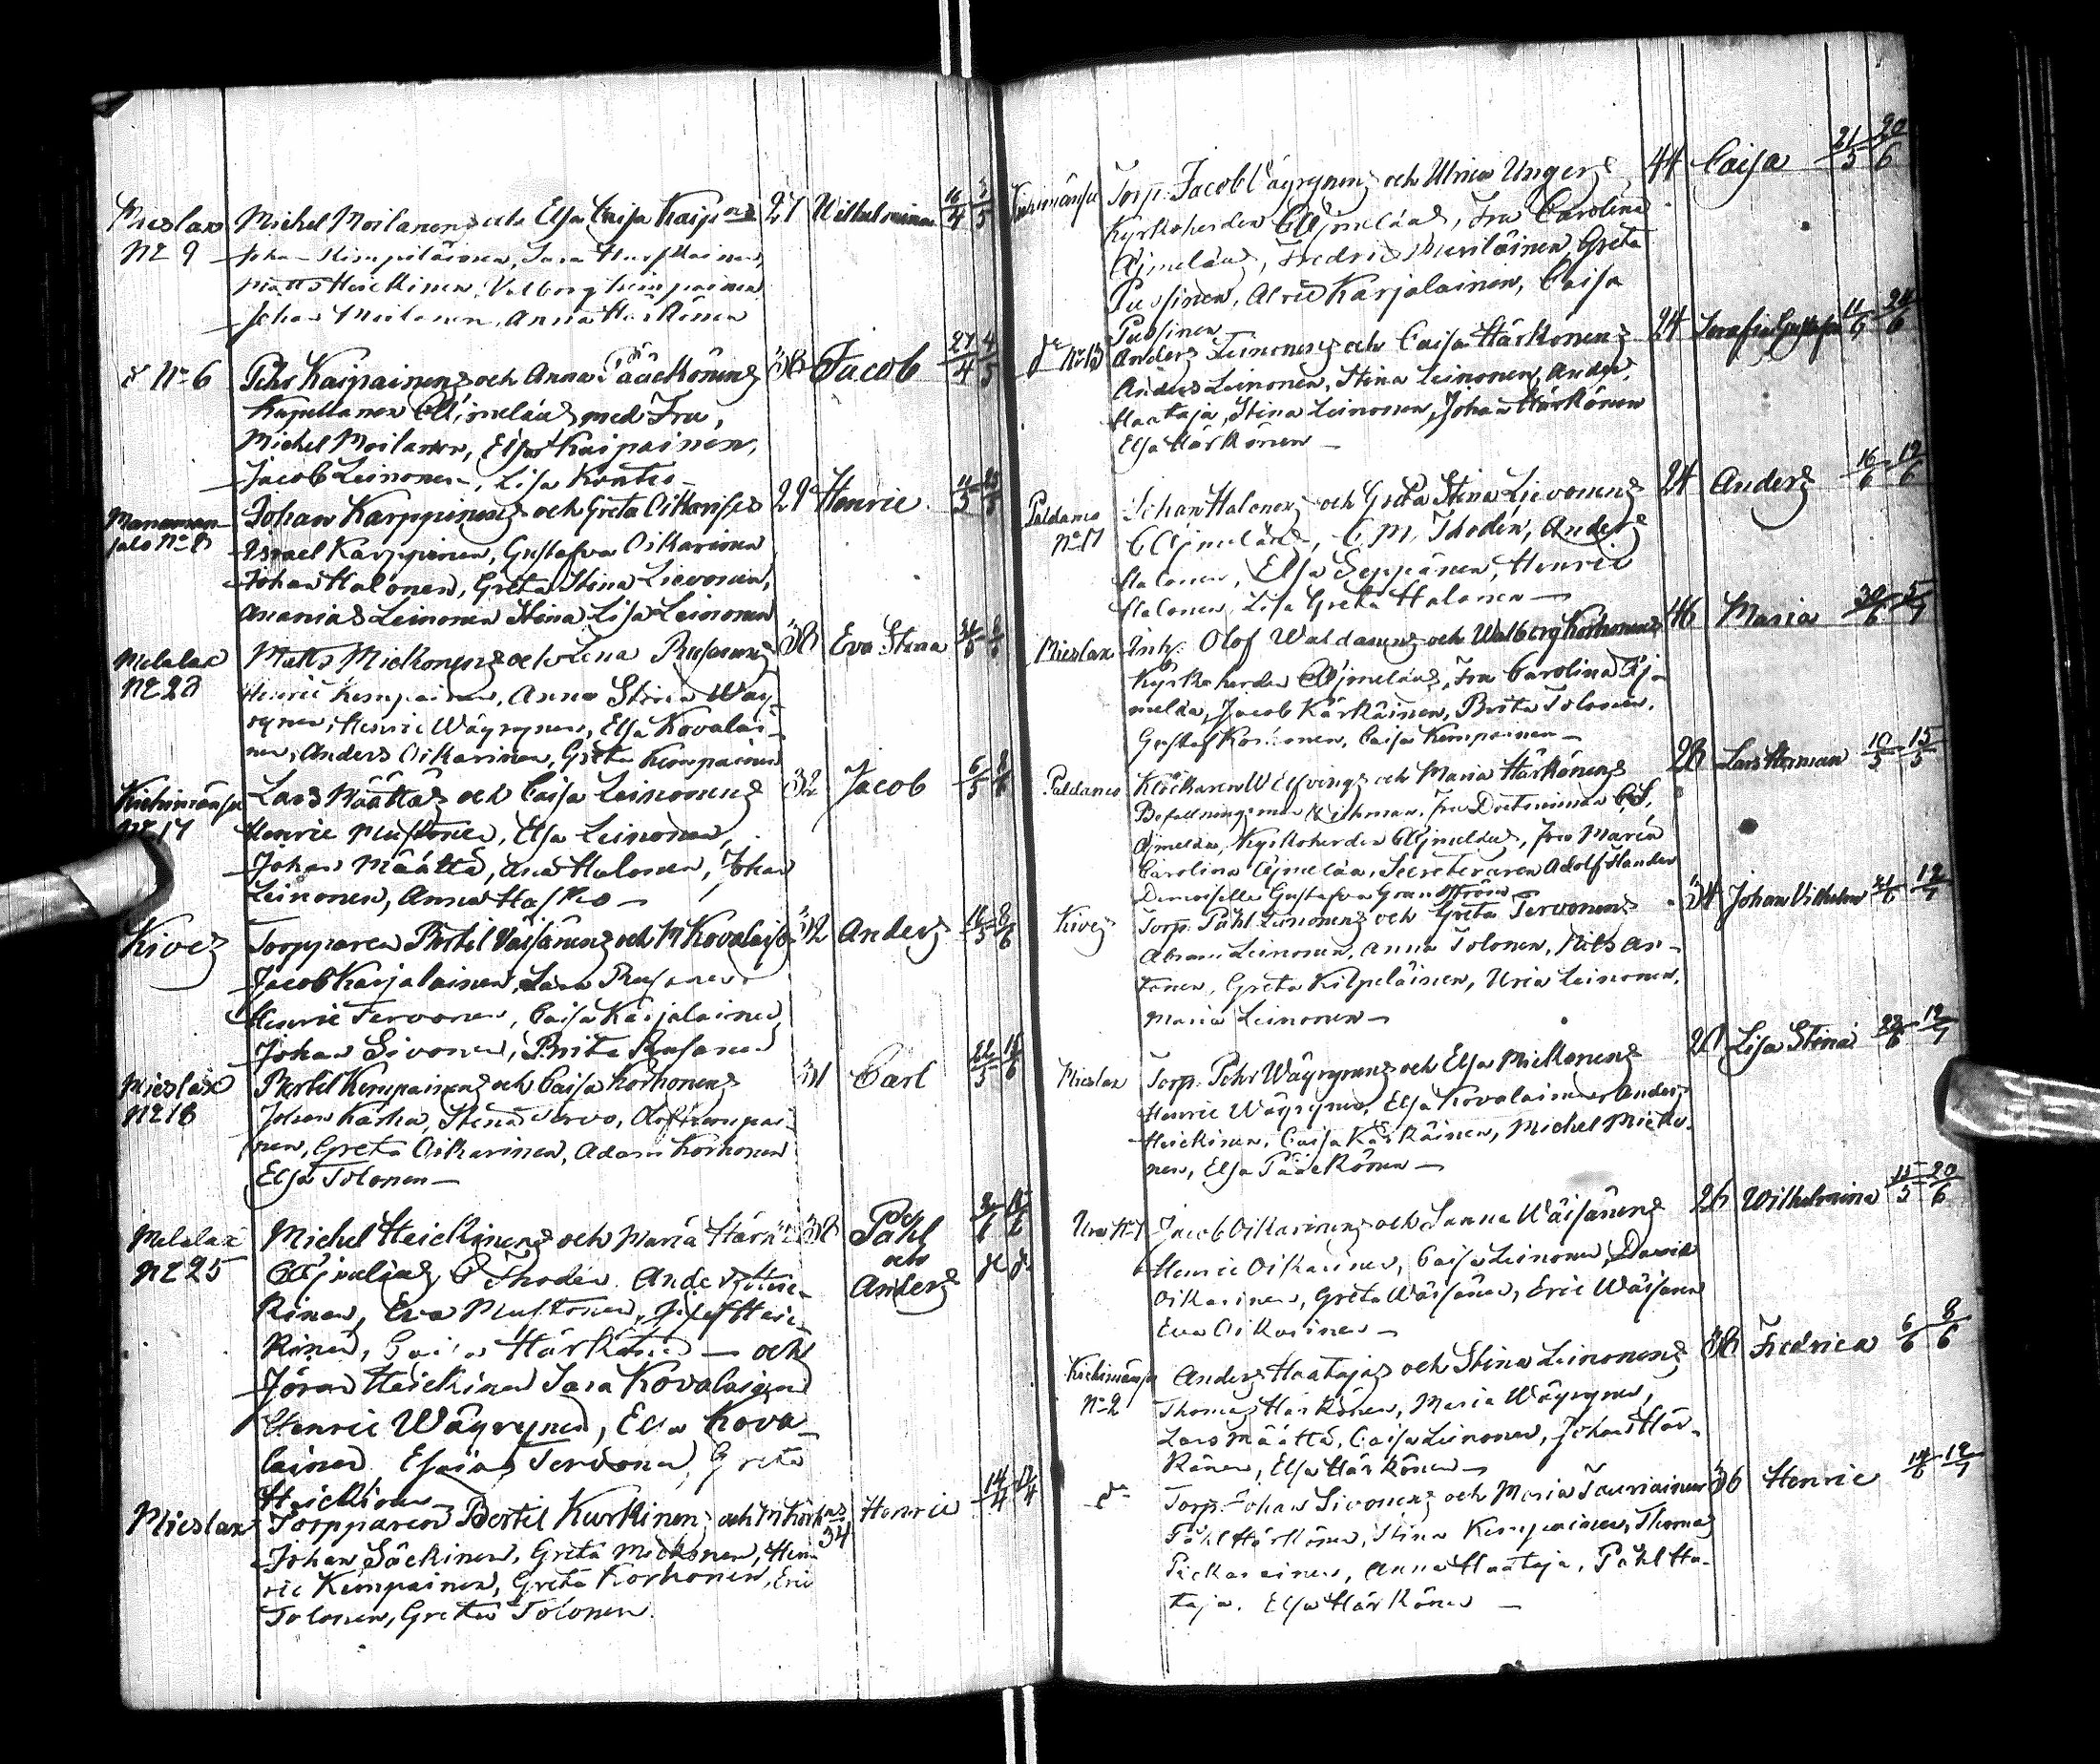 Mieslax Michel Moilanens och Elsa Caisa Kaip 27 Wilhelmina 16/4 3/5
No 9 Johan Kimpiläinen, Sara Huskainen,
Matts Heickinen, Valborg Kempainen
Johan Moilanen, Anna Härkönen
do No 6 Pehr Kaipainens och Anna Pääckönens 38 Jacob 27/4 4/5
Kapellanen Ajmelaus med Fru,
Michel Moilanen, Elsa Kaipainen,
Jacob Leinonen, Lisa Kontio
Johan Karppinens och Greta Oikarises 29 Henric
Israel Karppinen, Gustafva Oikarinen
Johan Halonen, Greta Stina Lievonen,
Ananias Leinonen Stina Lisa Leinonen
Melalax Matts Mickonens och Lena Rusanens 38 Eva Stina
No 23 Henric Kempainen, Anna Stina Wäy-
rynen, Henric Wäyrynen, Elsa Kovalai-
nen, Anders Oikarinen, Greta Kempainen
Kiehimänsu Lars Määttäs och Caisa Leinonens 32 Jacob 6/5 8/6
No 17 Henric Mustonen, Elsa Leinonen,
Johan Määttä, Ana Halonen, Johan
Leinonen, Anna Hasko
Kives Torpparen Bertil Väisänens och M Kovalais 32 Anders 16/5 8/6
Jacob Karjalainen, Lena Rusanen
Henric Tervonen, Caisa Karjalainen,
Johan Sivonen, Brita Rusanen
Mieslax Bertil Kempainens och Caisa Korhonens 31 Carl
No 18 Johan Karhu, Stina Tervo, Olof Kempai-
nen, Greta Oikarinen, Adam Korhonen
Elsa Tolonen
Melalax Michel Heickinens och Maria Härk 38 Påhl
No 25 Ajmelaus, C Thoden Anders Heic- och Anders
kinen, Eva Mustonen, Heic-
kinen, Härkönen och
Jöran Heickinen Sara Kovalainen
Henric Wäyrynen, Elsa Kova-
lainen Esaias Tervonen, Greta
Heickinen
Mieslax Torpparen Bertil Kurkinens och M Kork 34 Henric 14/4 17/4
Johan Säckinen, Greta Mickonen, Hen-
ric Kempainen, Greta Korhonen, Eric
Tolonen, Greta Tolonen.
Kiehimänsu Torp. Jacob Väyrynens och Ulrica Ungers 44 Caisa 21/5 20/6
Kyrkoherden Ajmelaus, Fru Carolina
Ajmelaus, Fredric Meriläinen, Greta
Pussinen, Alric Karjalainen, Caisa
Pussinen
do No 13 Anders Leinonens och Caisa Härkönens 24 Serafia Gustafva
Anders Leinonen, Stina Leinonen, Anders
Haataja, Stina Leinonen, Johan Härkönen
Elsa Härkönen
Paldamo Johan Halonens och Greta Stina Lievonens 24 Anders 16/6 19/6
No 17 C Ajmelaus, C. M. Thodén, Anders
Halonen, Elsa Seppänen, Henric
Halonen, Lisa Greta Halonen
Mieslax Inh. Olof Waldanens och Walborg Korhonens 46 Maria 30/6 5/7
Kyrkoherden Ajmelaus, Fru Carolina Aj-
melaus, Jacob Kärkäinen, Brita Tolonen,
Gustaf Korhonen, Caisa Kempainen
Paldamo Klockaren W Elfvings och Maria Härkönens 28 Lars Herman 10/5 15/5
Befallningsman Wichman, Fru Doctorinnan C S.
Ajmelaus, Kyrkoherden Ajmelaus, Fru Maria
Carolina Ajmelaus, Secreteraren Adolf Hander
Demoiselle Gustafva Granström
Kives Torp. Påhl Leinonens och Greta Tervonens 34 Johan Vilhelm
Abram Leinonen, Anna Tolonen, Nils An-
tonen, Greta Kilpeläinen, Uria Leinonen,
Maria Leinonen
Mieslax Torp. Pehr Wäyrynens och Elsa Mickonens Lisa Stina
Henric Wäyrynen, Elsa Kovalainen, Anders
Heickinen, Caisa Kärkäinen, Michel Micko-
nen, Elsa Pääckönen
Jacob Oikarinens och Sanna Wäisänens 26 Wilhelmina 15/5 20/6
Henric Oikarinen, Caisa Leinonen, David
Oikarinen, Greta Wäisänen, Eric Wäisänen
Eva Oikarinen
Kiehimänsu Anders Haatajas och Stina Leinonens 38 Fredrica 6/6 8/6
No 2 Thomas Härkönen, Maria Wäyrynen,
Lars Määttä, Caisa Leinonen, Johan Här-
könen, Elsa Härkönen
do Torp. Johan Sivonens och Maria Tauriainen 36 Henric
Påhl Härkönen, Stina Kempainen, Thomas
Pickarainen, Anna Haataja, Påhl Haa-
taja, Elsa Härkönen